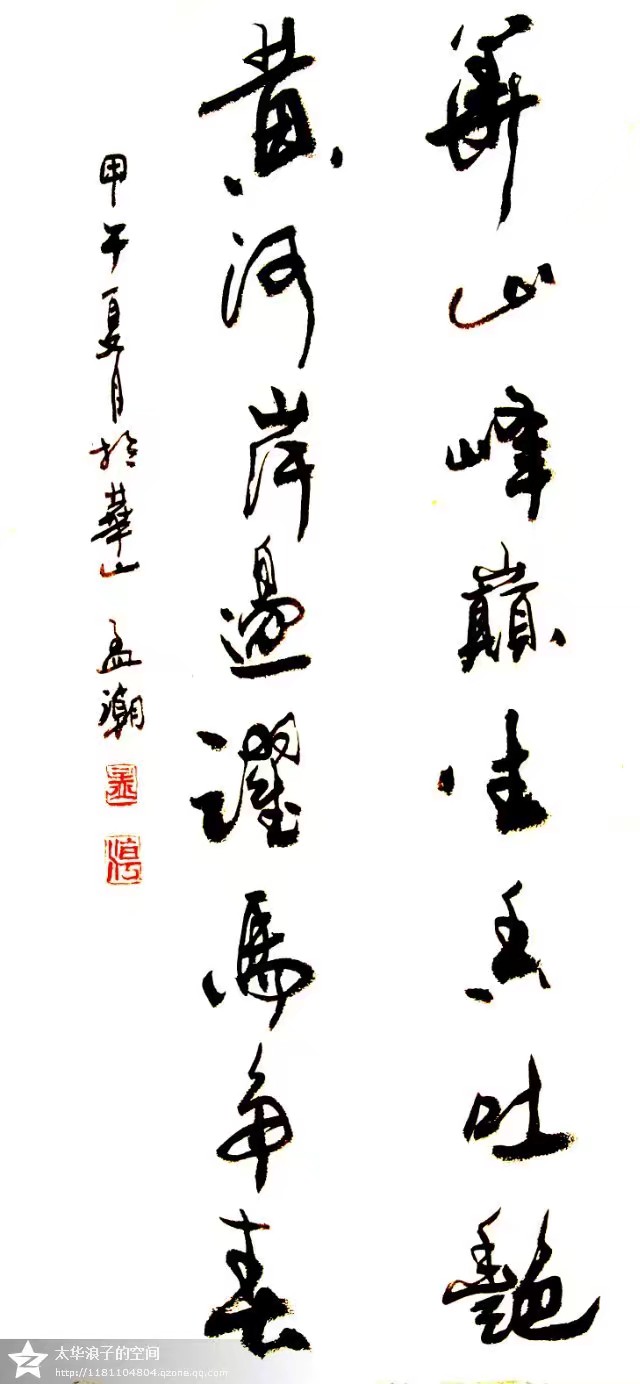 華山峰巔生香吐艷
黄河岸邊躍馬争春
甲午夏月於華山 孟潮
太华浪子的空间
http://1181104804.qzone.qq.com